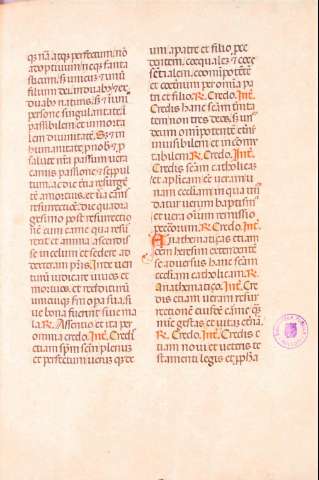 que nā atque perfectum, nō
adoptiuum neque fanta
sticum. sꝫ unicū ⁊ unū
filium dei. induabꝫ ⁊ ex
duabꝫ naturis. sꝫ ĩ uni
persone singularitate. ĩ
passibilem et inmorta
lem diuinitate. Sꝫ in
humanitate pro nob ⁊ p
salute nr̃a passum uera
carnis passione ⁊ sepul
tum, ac die tña resurgē
te amortuis, et uā carnis
resurrectiōe. die quadra
gesimo post resurrectio
nē cum carne qua resur
rexit et anima ascendis
se in celum et sedere ad
dexteram pr̄is. Inde uen
turū iudicare uiuos et
mortuos. et redditurū
unicuique sm̄ opera sua, si
ue bona fuerint siue ma
la. R. Assentio et ita per
omnia credo. Int̄. Credis
etiam sp̄m sc̄m plenum
et perfectum uerūque de
um. apatre et filio proce
dentem. coequalē ⁊ coes
sentialem. coomīpotētē
et coeternum per omīa pa
tri et filio. R. Credo. Int̄.
Credis hanc sc̄am trinita
tem non tres deos. sꝫ unū
deum omīpotentē eternū
inuisibilem et incommu
tabilem. R. Credo. Int̄.
Credis sc̄am catholicā
et aplicam eē ueram u
nam eccl̄iam in qua unū
datur uerum baptismū
et uera oīum remissio
peccorum. R. Credo. Int̄.
Anathematiças etiam
omnem heresim extollentē
se aduersus hanc sc̄am
eccl̄iam catholicam. R.
Anathematiço. Int̄. Cre
dis etiam ueram resur
rectionē eiusdē carnis quā
nūc gestas. et uitā etnā.
R. Credo. Int̄. Credis e
tiam noui et ueteris te
stamenti legis et ꝓph̄a